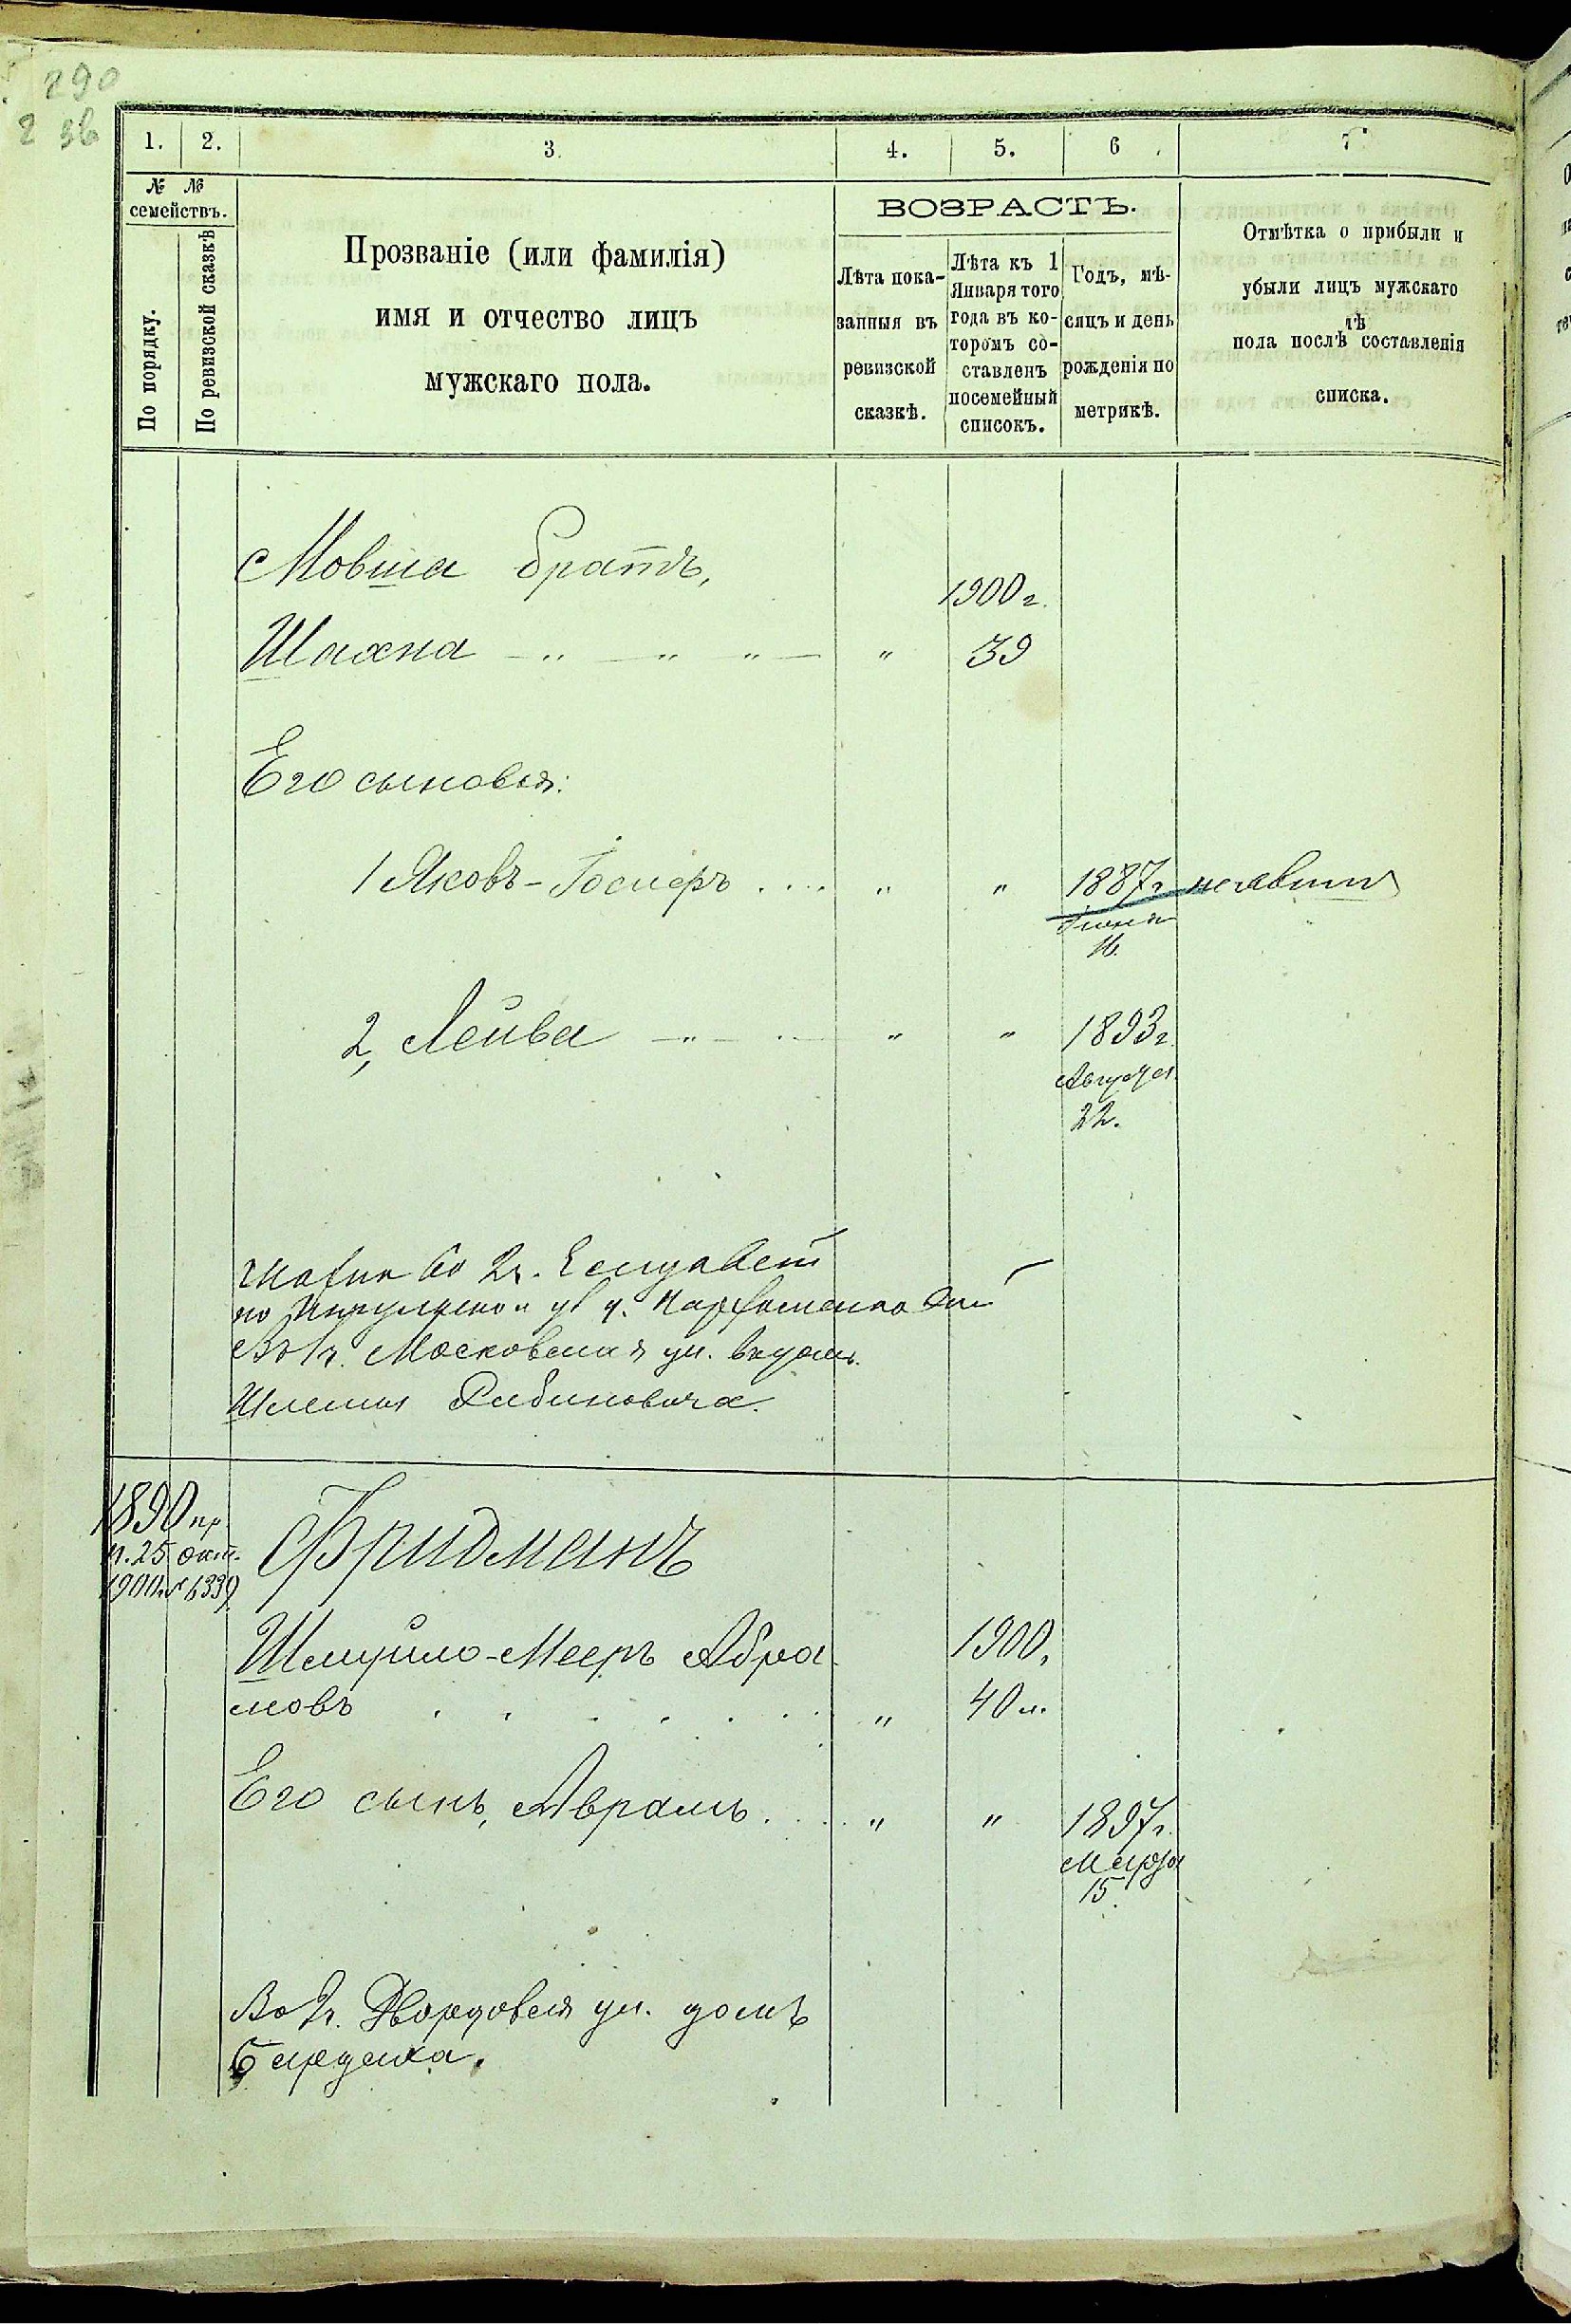 290
2 36
1. 2. 3. 4. 5. 6. 7
№ № семействъ.
По порядку.
По ревизской сказкѣ
Прозваніе (или фамилія)
имя и отчество лицъ
мужскаго пола.
ВОЗРАСТЪ.
Лѣта пока-
занныя въ
ревизской
сказкѣ.
Лѣта къ 1
Января того
года въ ко-
торомъ со-
ставленъ
посемейный
списокъ.
Годъ, мѣ-
сяцъ и день
рожденія по
метрикѣ.
Отмѣтка о прибыли и
убыли лицъ мужскаго
пола послѣ составленія
списка.
Мовша братъ,
1900 г.
Шахна " " " " 39
Его сыновья:
1 Яковъ-Іосифъ .... " " 1887 г неявил
Іюня
16.
2, Лейба " " " 1893 г.
Августа
22.
по ул.
Во 2ч. Московская ул. въ домъ
Рабиновича.
1890 пр.
п. 25 окт.
1900 № 6339
Фридманъ
Шмуйло-Мееръ Абра- 1900,
мовъ . . . . . . . " 40 л.
Его сынъ, Абрамъ . . . . " " 1897 г.
Марта
15.
Во 2ч. ул. домъ